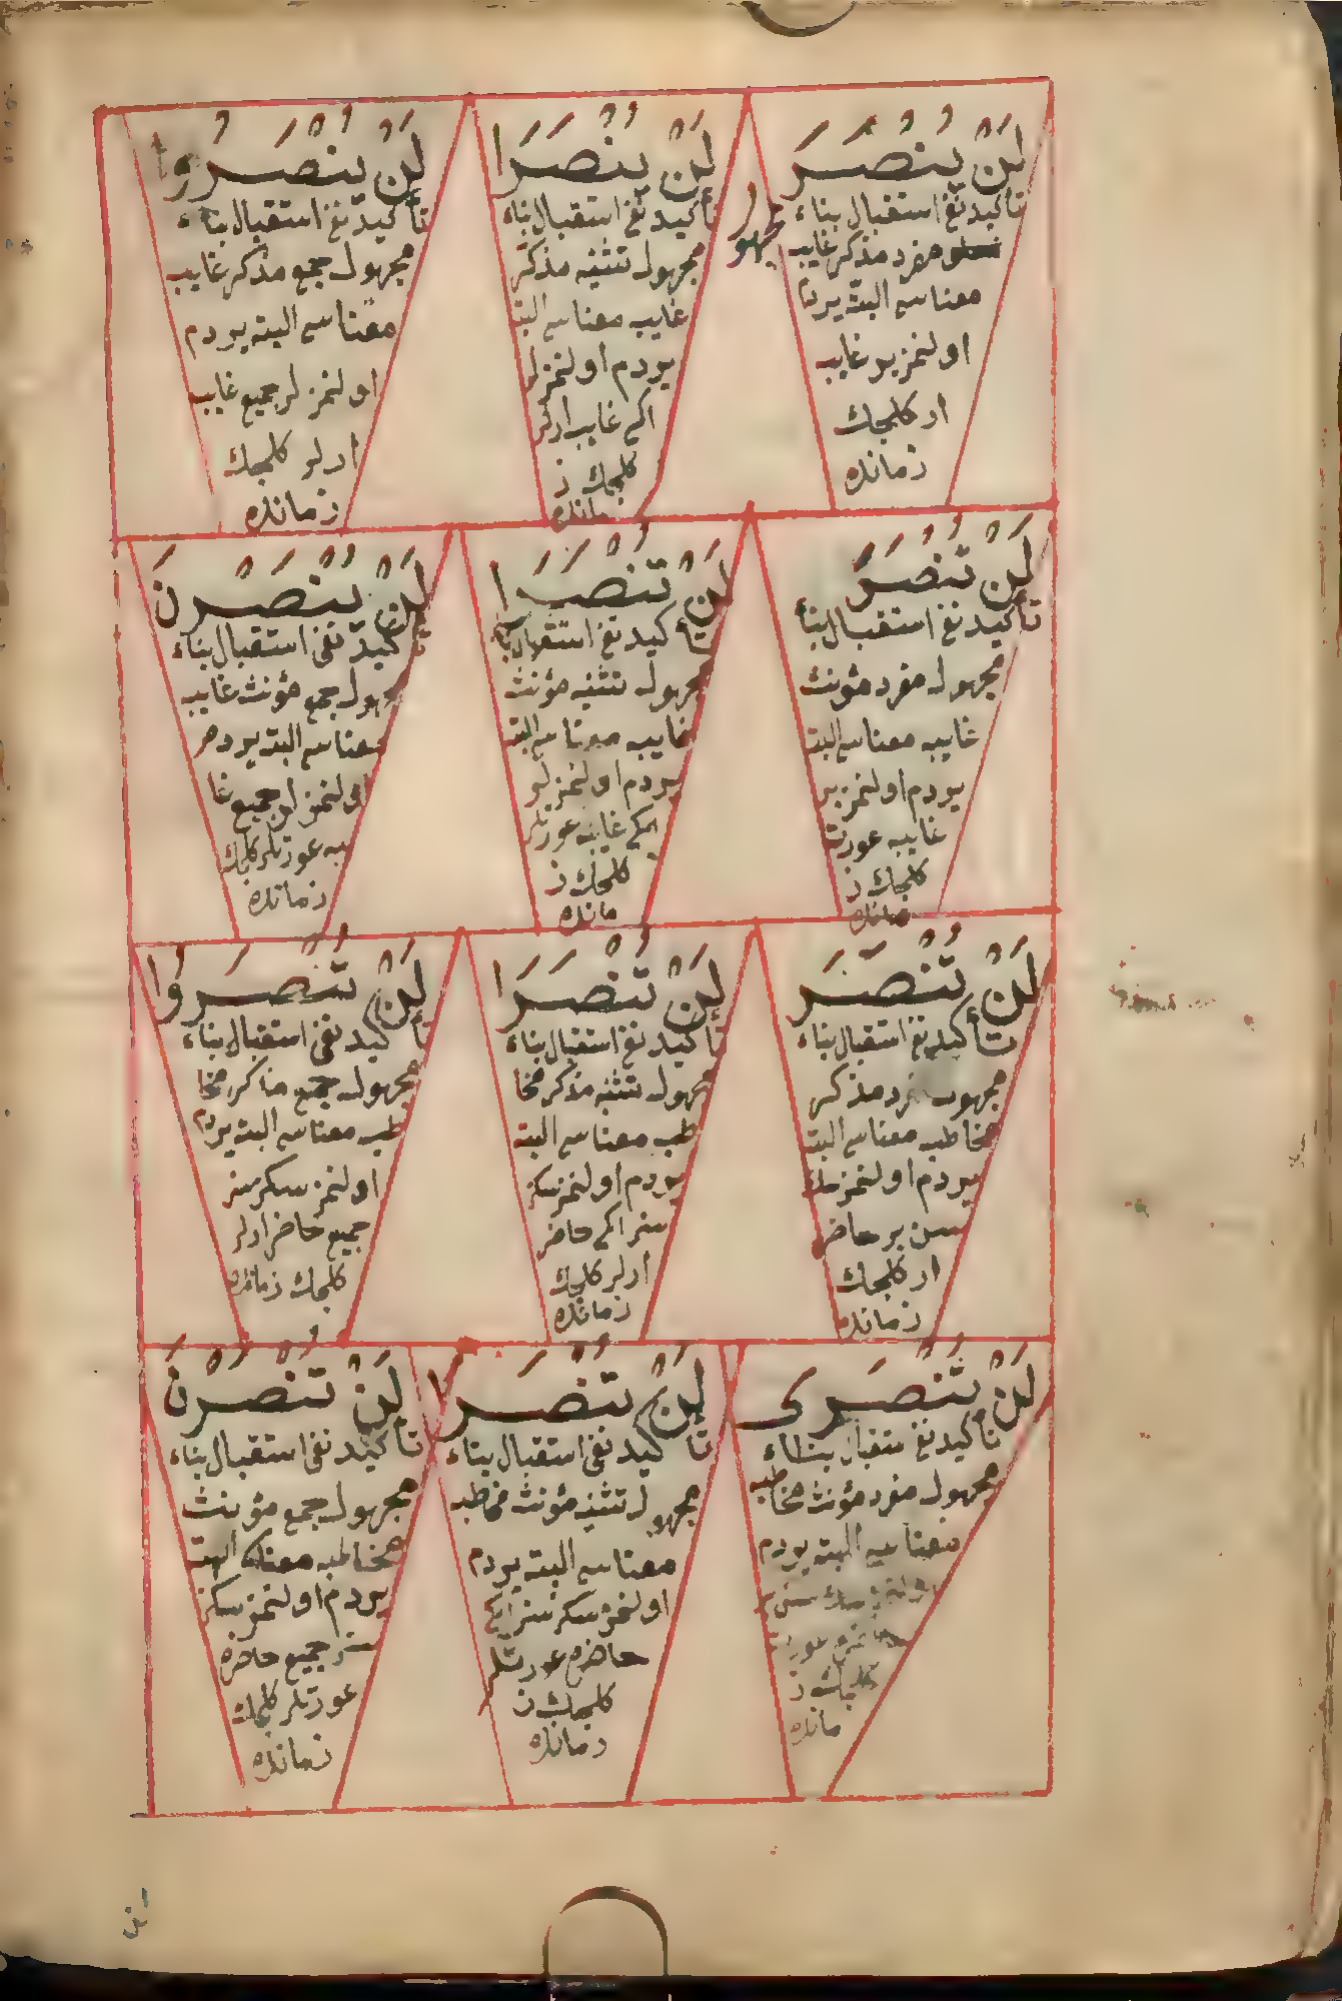 لَنْ يُنْصَرَ
تأكيد نفي استقبال بناء
مجهول
مفرد مذكر غايب
معناسي البته يردم
اولنمز بر غايب
ار كلجك
زمانده
لَنْ يُنْصَرَا
تأكيد نفي استقبال بناء
مجهول تثنيه مذكر
غايب معناسي البته
يردم اولنمزلر
اكي غايب ارلر
كلجك ز
مانده
لَنْ يُنْصَرُوا
تأكيد نفي استقبال بناء
مجهول جمع مذكر غايب
معناسي البته يردم
اولنمزلر جميع غايب
ارلر كلجك
زمانده
لَنْ تُنْصَرَ
تأكيد نفي استقبال بناء
مجهول مفرد مؤنث
غايبه معناسي البته
يردم اولنمز بر
غايبه عورت
كلجك ز
مانده
لَنْ تُنْصَرَا
تأكيد نفي استقبال بناء
مجهول تثنيه مؤنث
غايبه معناسي البته
يردم اولنمزلر
ايكي غايبه عورتلر
كلجك ز
مانده
لَنْ يُنْصَرْنَ
تأكيد نفي استقبال بناء
مجهول جمع مؤنث غايبه
معناسي البته يردم
اولنمزلر جميع غا
يبه عورتلر كلجك
زمانده
لَنْ تُنْصَرَ
تأكيد نفي استقبال بناء
مجهول مفرد مذكر
مخاطب معناسي البته
يردم اولنمزسك
سن بر حاضر
ار كلجك
زمانده
لَنْ تُنْصَرَا
تأكيد نفي استقبال بناء
مجهول تثنيه مذكر مخا
طب معناسي البته
يردم اولنمزسكز
سز اكي حاضر
ارلر كلجك
زمانده
لَنْ تُنْصَرُوا
تأكيد نفي استقبال بناء
مجهول جمع مذكر مخا
طب معناسي البته يردم
اولنمزسكز سز
جميع حاضر ارلر
كلجك زمانده
لَنْ تُنْصَرِى
تأكيد نفي ستقبال بناء
مجهول مفرد مؤنث مخاطبه
معناسي البته يردم
اولنمزسك سن بر
حاضره عورت
كلجك ز
مانده
لَنْ تُنْصَرَا
تأكيد نفي استقبال بناء
مجهول تثنيه مؤنث مخاطبه
معناسي البته يردم
اولنمزسكز سز ايكي
حاضره عورتلر
كلجك ز
زمانده
لَنْ تُنْصَرْنَ
تأكيد نفي استقبال بناء
مجهول جمع مؤنث
مخاطبه معناسي البته
يردم اولنمزسكز
سز جميع حاضره
عورتلر كلجك
زمانده